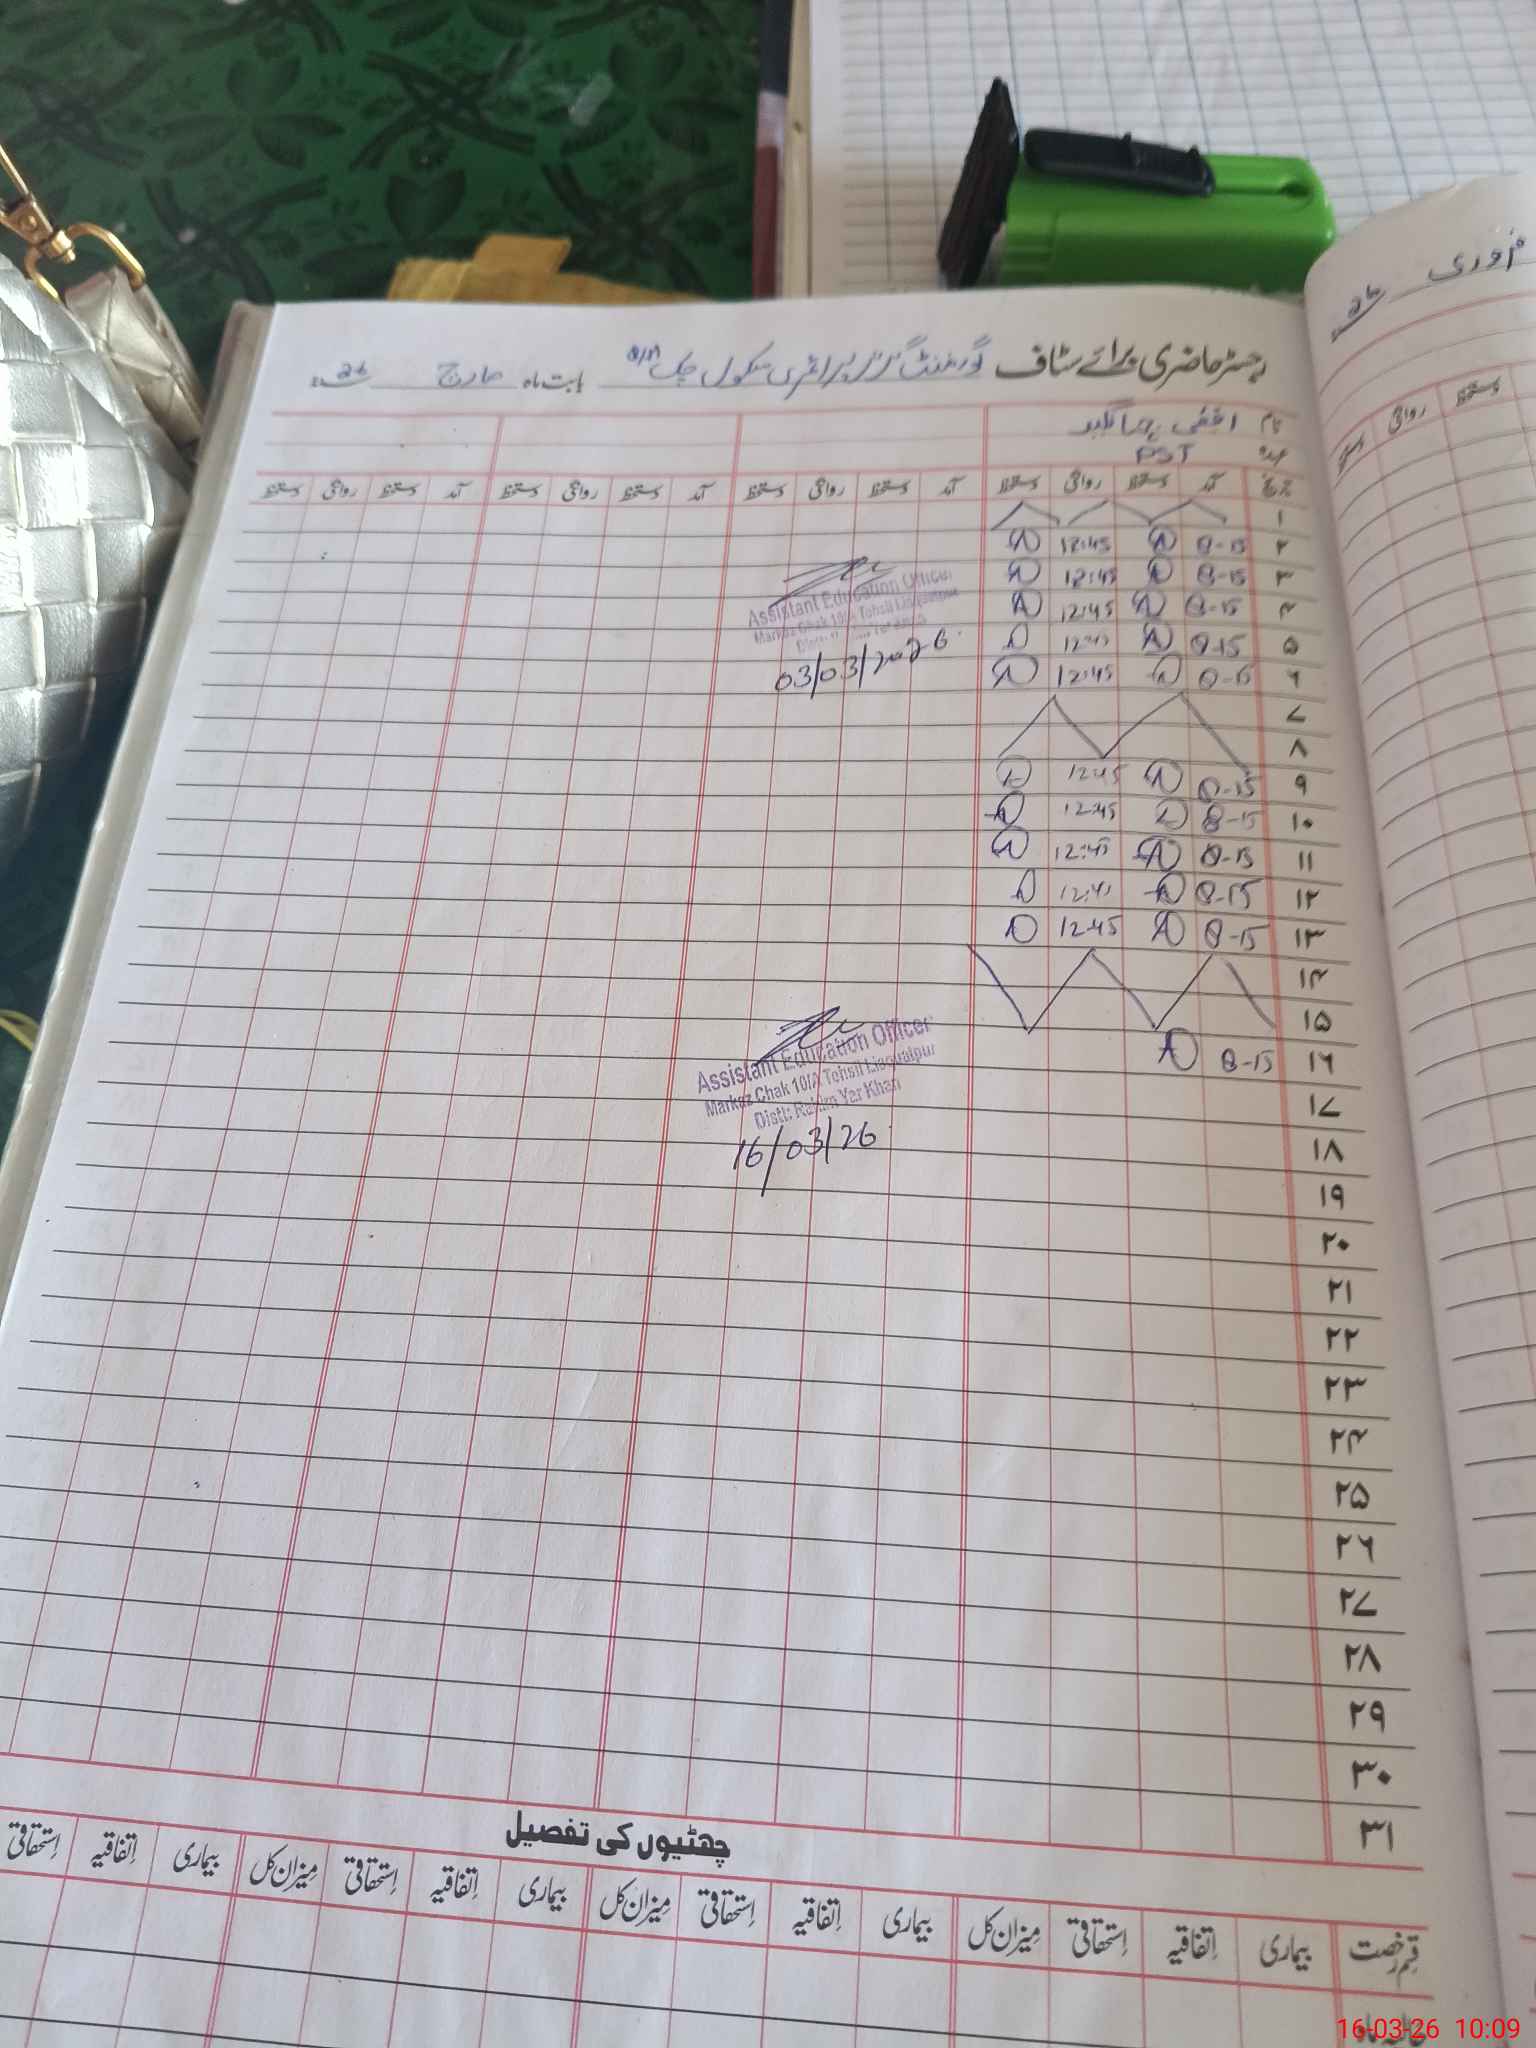 رجسٹر حاضری برائے سٹاف گورنمنٹ گرلز پرائمری سکول چک بابت ماہ مارچ 26
فروری 26
نام
عہدہ PST
تاریخ آمد دستخط روانگی دستخط آمد دستخط روانگی دستخط آمد دستخط روانگی دستخط آمد دستخط روانگی دستخط
روانگی دستخط
۱
۲ 8-15 12:45
۳ 8-15 12:45
۴ 8-15 12:45
۵ 8-15 12:45
۶ 8-15 12:45
۷
۸
۹ 8-15 12:45
۱۰ 8-15 12:45
۱۱ 8-15 12:45
۱۲ 8-15 12:45
۱۳ 8-15 12:45
۱۴
۱۵
۱۶ 8-15
۱۷
۱۸
۱۹
۲۰
۲۱
۲۲
۲۳
۲۴
۲۵
۲۶
۲۷
۲۸
۲۹
۳۰
۳۱
Assistant Education Officer
Markaz Chak 10/A Tehsil Liaquatpur
03/03/2026
Assistant Education Officer
Markaz Chak 10/A Tehsil Liaquatpur
Distt: Rahim Yar Khan
16/03/26
چھٹیوں کی تفصیل
قسم رخصت بیماری اتفاقیہ استحقاقی میزان کل بیماری اتفاقیہ استحقاقی میزان کل بیماری اتفاقیہ استحقاقی میزان کل بیماری اتفاقیہ استحقاقی
16-03-26 10:09